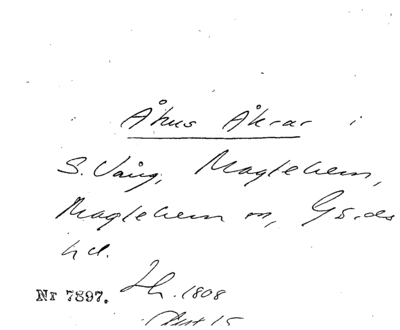 Åhus Åkrar i
S. Vång, Maglehem,
Maglehem sn, Gärds
hd.
Nr 7897. Lh. 1808
Akt 15